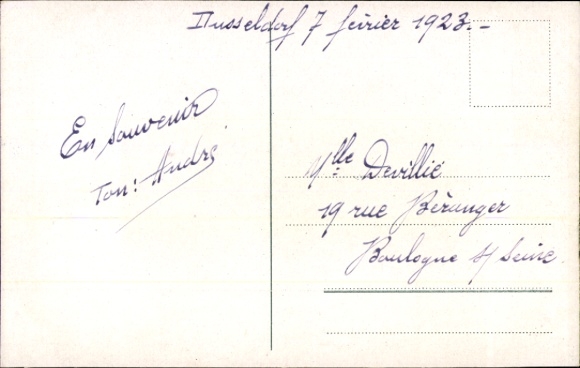 Dusseldorf 7 février 1923.-
En souvenir
Ton: André
Mlle Devillié
19 rue Béranger
Boulogne s/ Seine.